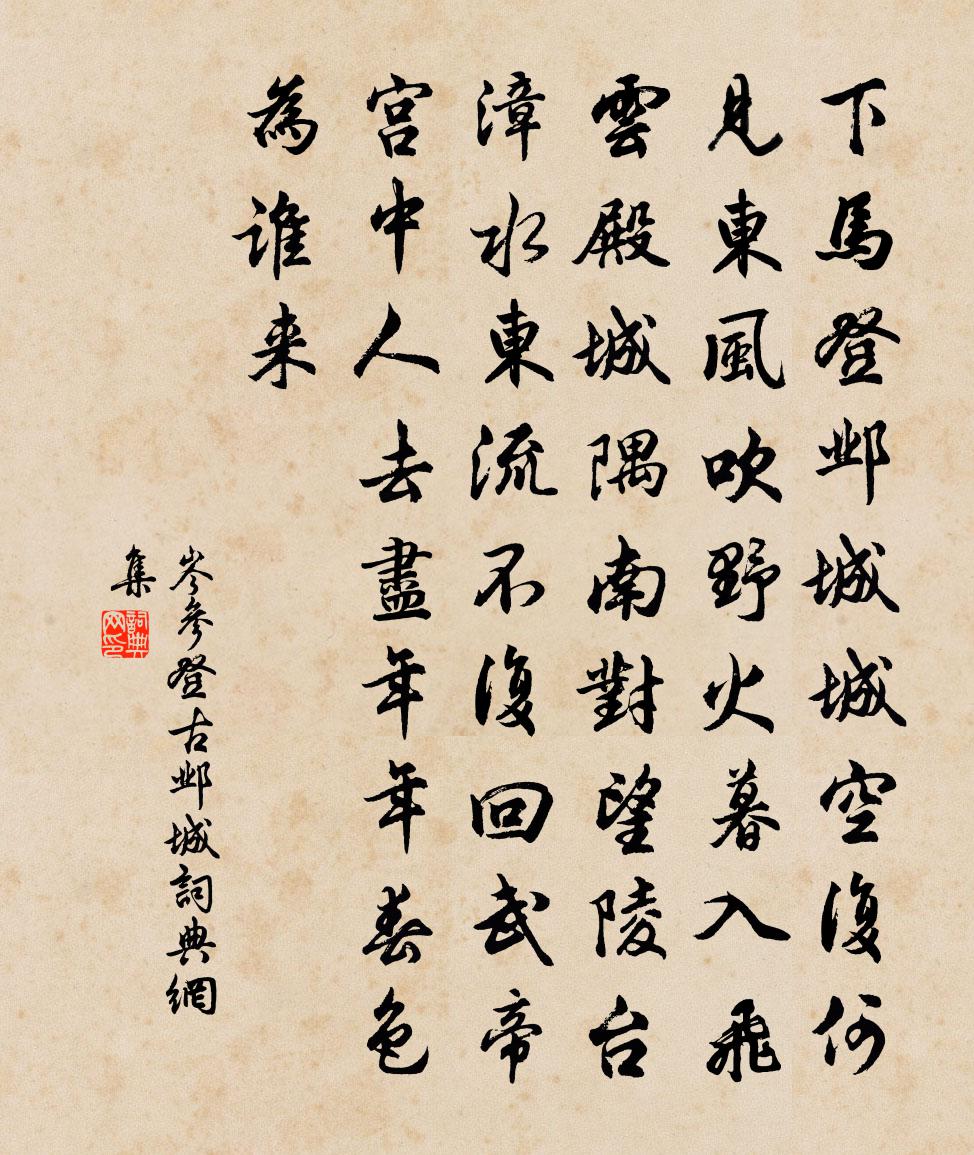 下馬登邺城城空復何
見東風吹野火暮入飛
雲殿城隅南對望陵台
漳水東流不復回武帝
宮中人去盡年年春色
為誰来
岑參登古邺城詞典網
集
詞典
网印